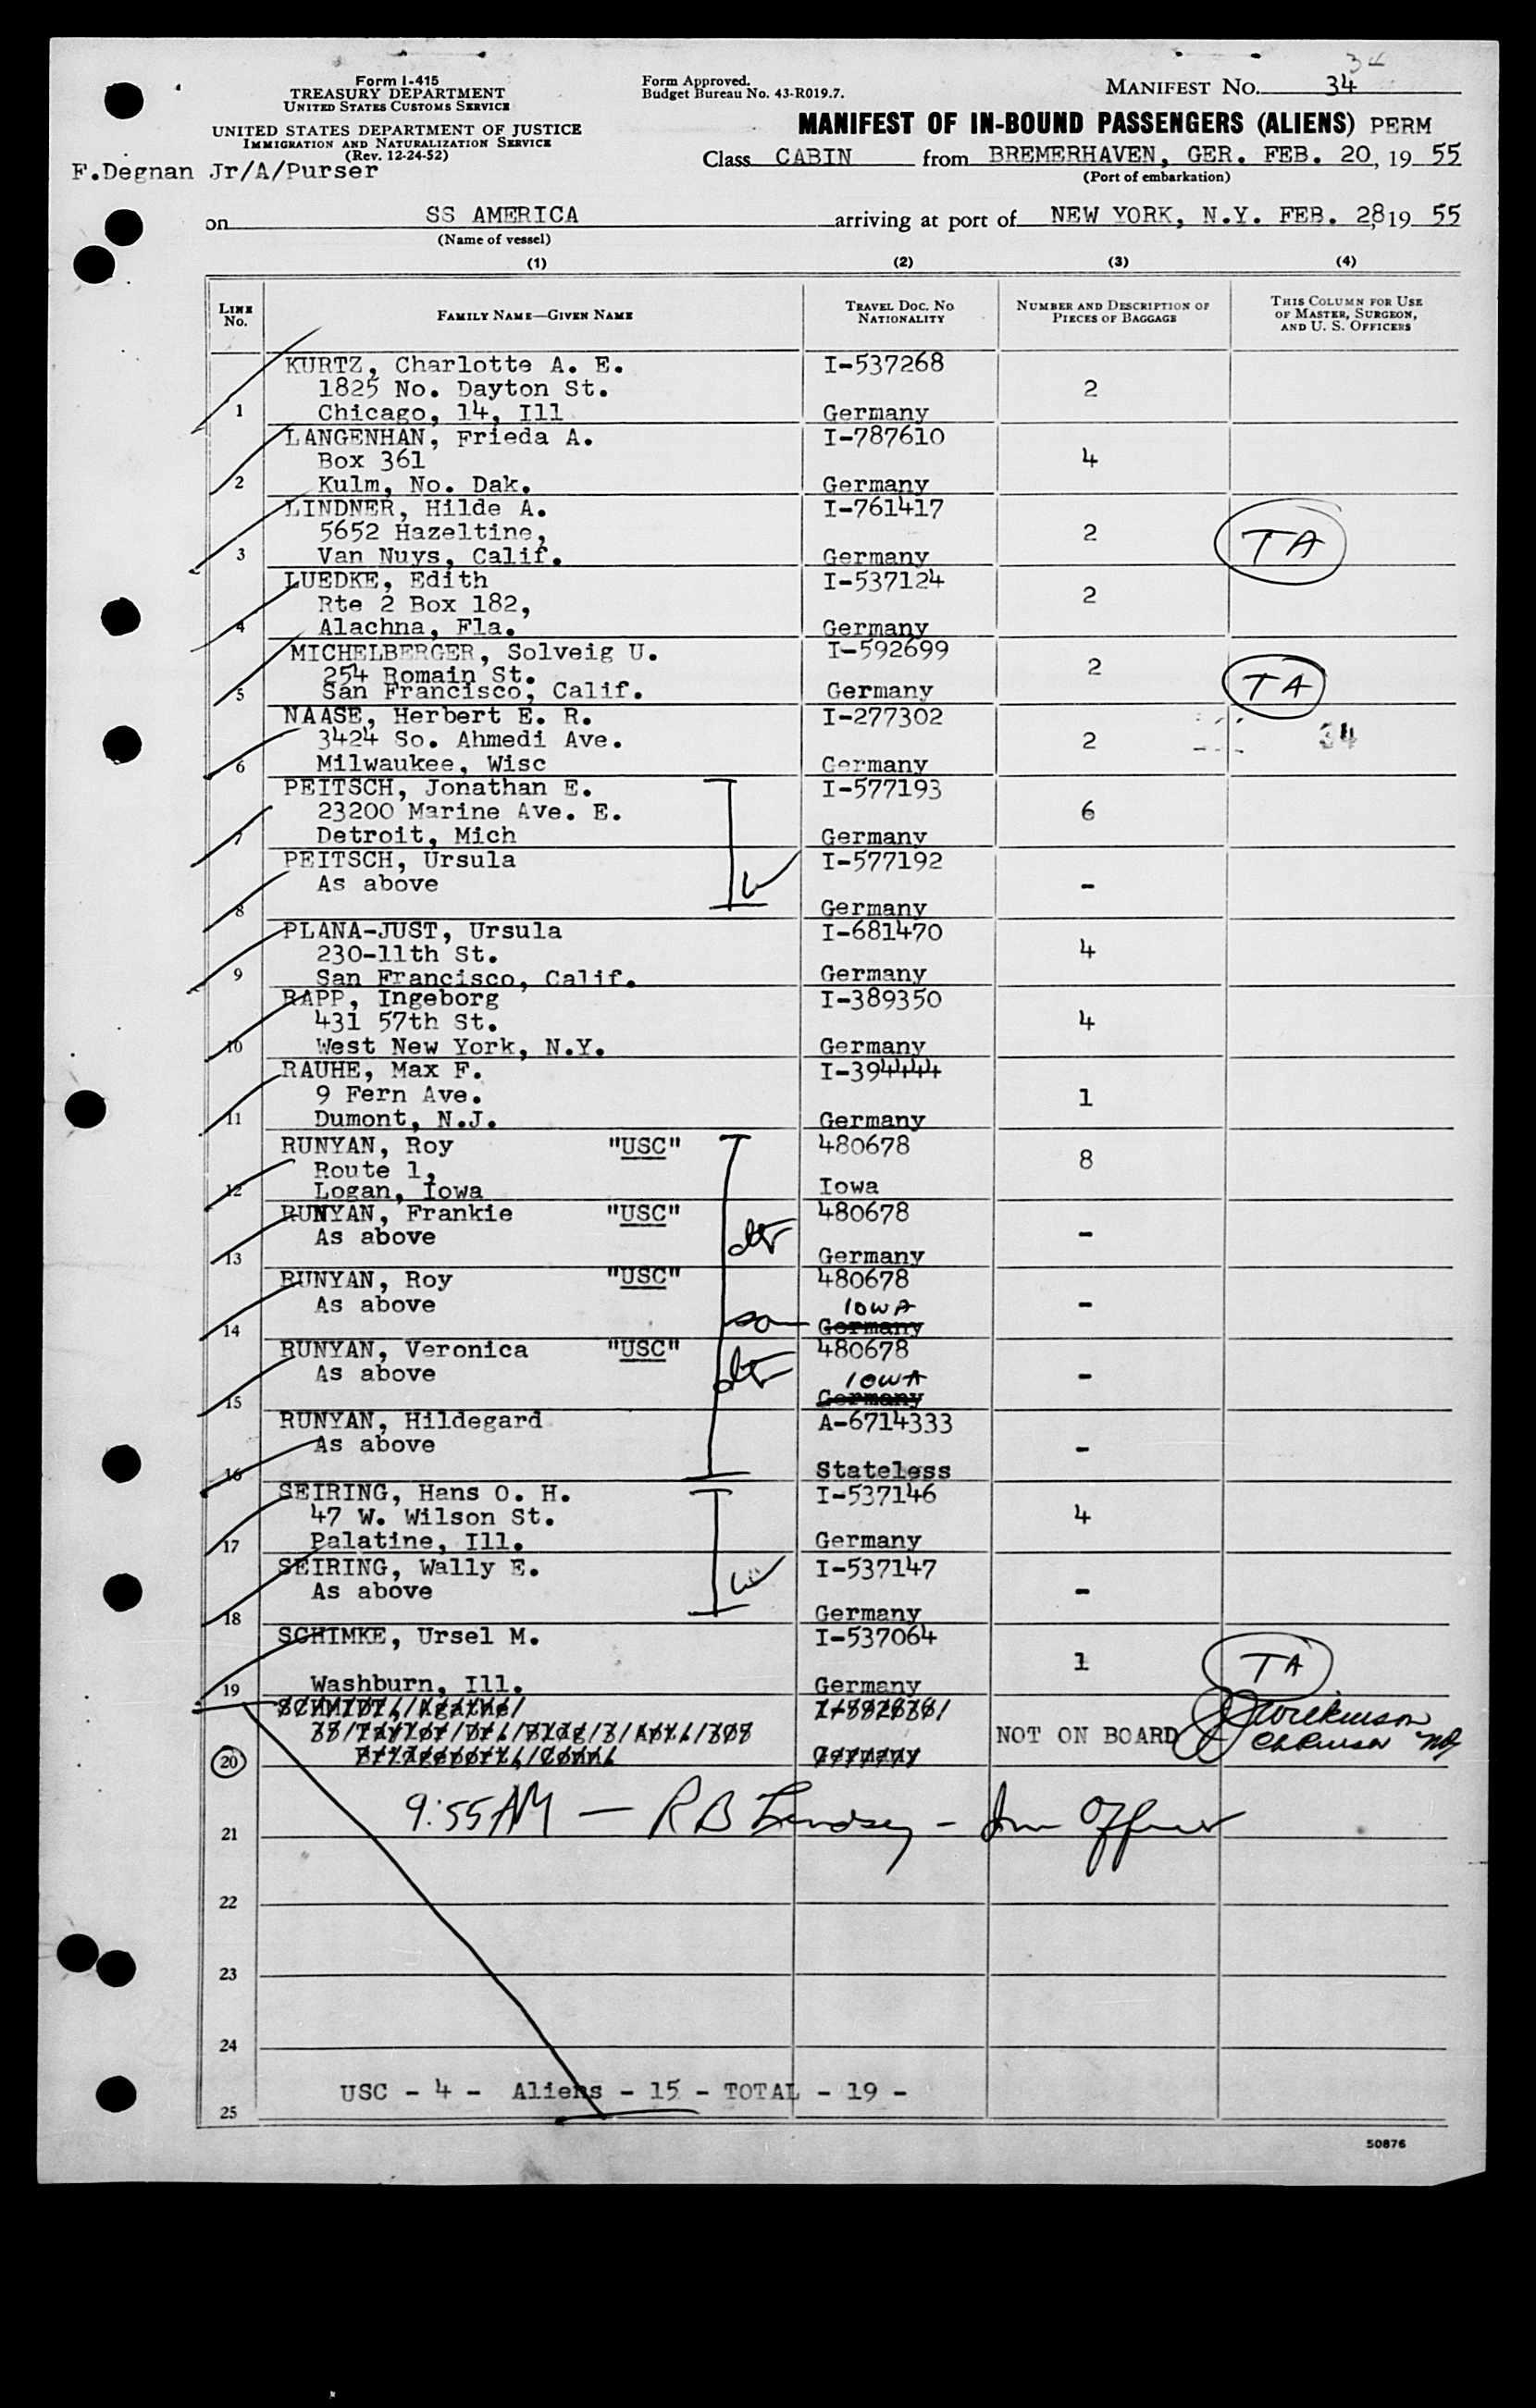 34
Form I-415
TREASURY DEPARTMENT
UNITED STATES CUSTOMS SERVICE
UNITED STATES DEPARTMENT OF JUSTICE
IMMIGRATION AND NATURALIZATION SERVICE
(Rev. 12-24-52)
F.Degnan Jr/A/Purser
Form Approved.
Budget Bureau No. 43-R019.7.
MANIFEST NO. 34
MANIFEST OF IN-BOUND PASSENGERS (ALIENS) PERM
Class CABIN from BREMERHAVEN, GER. FEB. 20, 19 55
(Port of embarkation)
on SS AMERICA arriving at port of NEW YORK, N.Y. FEB. 28, 19 55
(Name of vessel)
(1) (2) (3) (4)
LINE No. FAMILY NAME—GIVEN NAME TRAVEL DOC. NO. NATIONALITY NUMBER AND DESCRIPTION OF PIECES OF BAGGAGE THIS COLUMN FOR USE OF MASTER, SURGEON, AND U. S. OFFICERS
KURTZ, Charlotte A. E. I-537268
1825 No. Dayton St. 2
1 Chicago, 14, Ill Germany
LANGENHAN, Frieda A. I-787610
Box 361 4
2 Kulm, No. Dak. Germany
LINDNER, Hilde A. I-761417
5652 Hazeltine, 2 TA
3 Van Nuys, Calif. Germany
LUEDKE, Edith I-537124
Rte 2 Box 182, 2
4 Alachna, Fla. Germany
MICHELBERGER, Solveig U. I-592699
254 Romain St. 2 TA
5 San Francisco, Calif. Germany
NAASE, Herbert E. R. I-277302
3424 So. Ahmedi Ave. 2 34
6 Milwaukee, Wisc Germany
PEITSCH, Jonathan E. I-577193
23200 Marine Ave. E. 6
7 Detroit, Mich Germany
PEITSCH, Ursula I-577192
As above w -
8 Germany
PLANA-JUST, Ursula I-681470
230-11th St. 4
9 San Francisco, Calif. Germany
RAPP, Ingeborg I-389350
431 57th St. 4
10 West New York, N.Y. Germany
RAUHE, Max F. I-394444
9 Fern Ave. 1
11 Dumont, N.J. Germany
RUNYAN, Roy "USC" 480678
Route 1, 8
12 Logan, Iowa Iowa
RUNYAN, Frankie "USC" 480678
As above dtr -
13 Germany
RUNYAN, Roy "USC" 480678
As above IOWA -
14 so Germany
RUNYAN, Veronica "USC" 480678
As above dtr IOWA -
15 Germany
RUNYAN, Hildegard A-6714333
As above -
16 Stateless
SEIRING, Hans O. H. I-537146
47 W. Wilson St. 4
17 Palatine, Ill. Germany
SEIRING, Wally E. I-537147
As above w -
18 Germany
SCHIMKE, Ursel M. I-537064
1 TA
19 Washburn, Ill. Germany
SCHMIDT, Agathe
38 Taylor Dr. Bldg 3 Apt. 308 NOT ON BOARD
20 Bridgeport, Conn. Germany
9:55 AM — R B Lindsey - Imm Officer
21
22
23
24
USC - 4 - Aliens - 15 - TOTAL - 19 -
25
50876